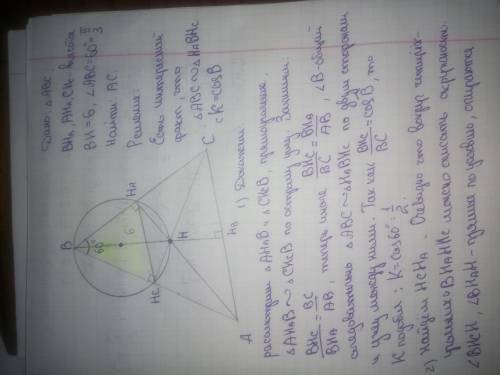 Дано: △ABC,
BHA, AHA, CHC - высоты
BH = 6, ∠ABC = 60° = π/3
Найти: AC.
Решение:
Есть интересный
факт, что
△ABC ~ △HABHC
с K = cosB
B
60°
6
HA
HC
H
HB
A
C
1) Докажем
рассмотрим △AHAB и △CHCB, прямоугольные.
△AHAB ~ △CHCB по острому углу. Запишем:
BHC/BHA = BC/AB, теперь иначе BHC/BC = BHA/AB, ∠B - общий
следовательно △ABC ~ △HABHC по двум сторонам
и углу между ними. Так как BHC/BC = cosB, то
K подобия: K = cos60° = 1/2.
2) Найдём HCHA. Очевидно что вокруг четырёх-
угольника BHAHHC можно описать окружность.
∠BHCH, ∠BHAH - прямые по условию, опираются